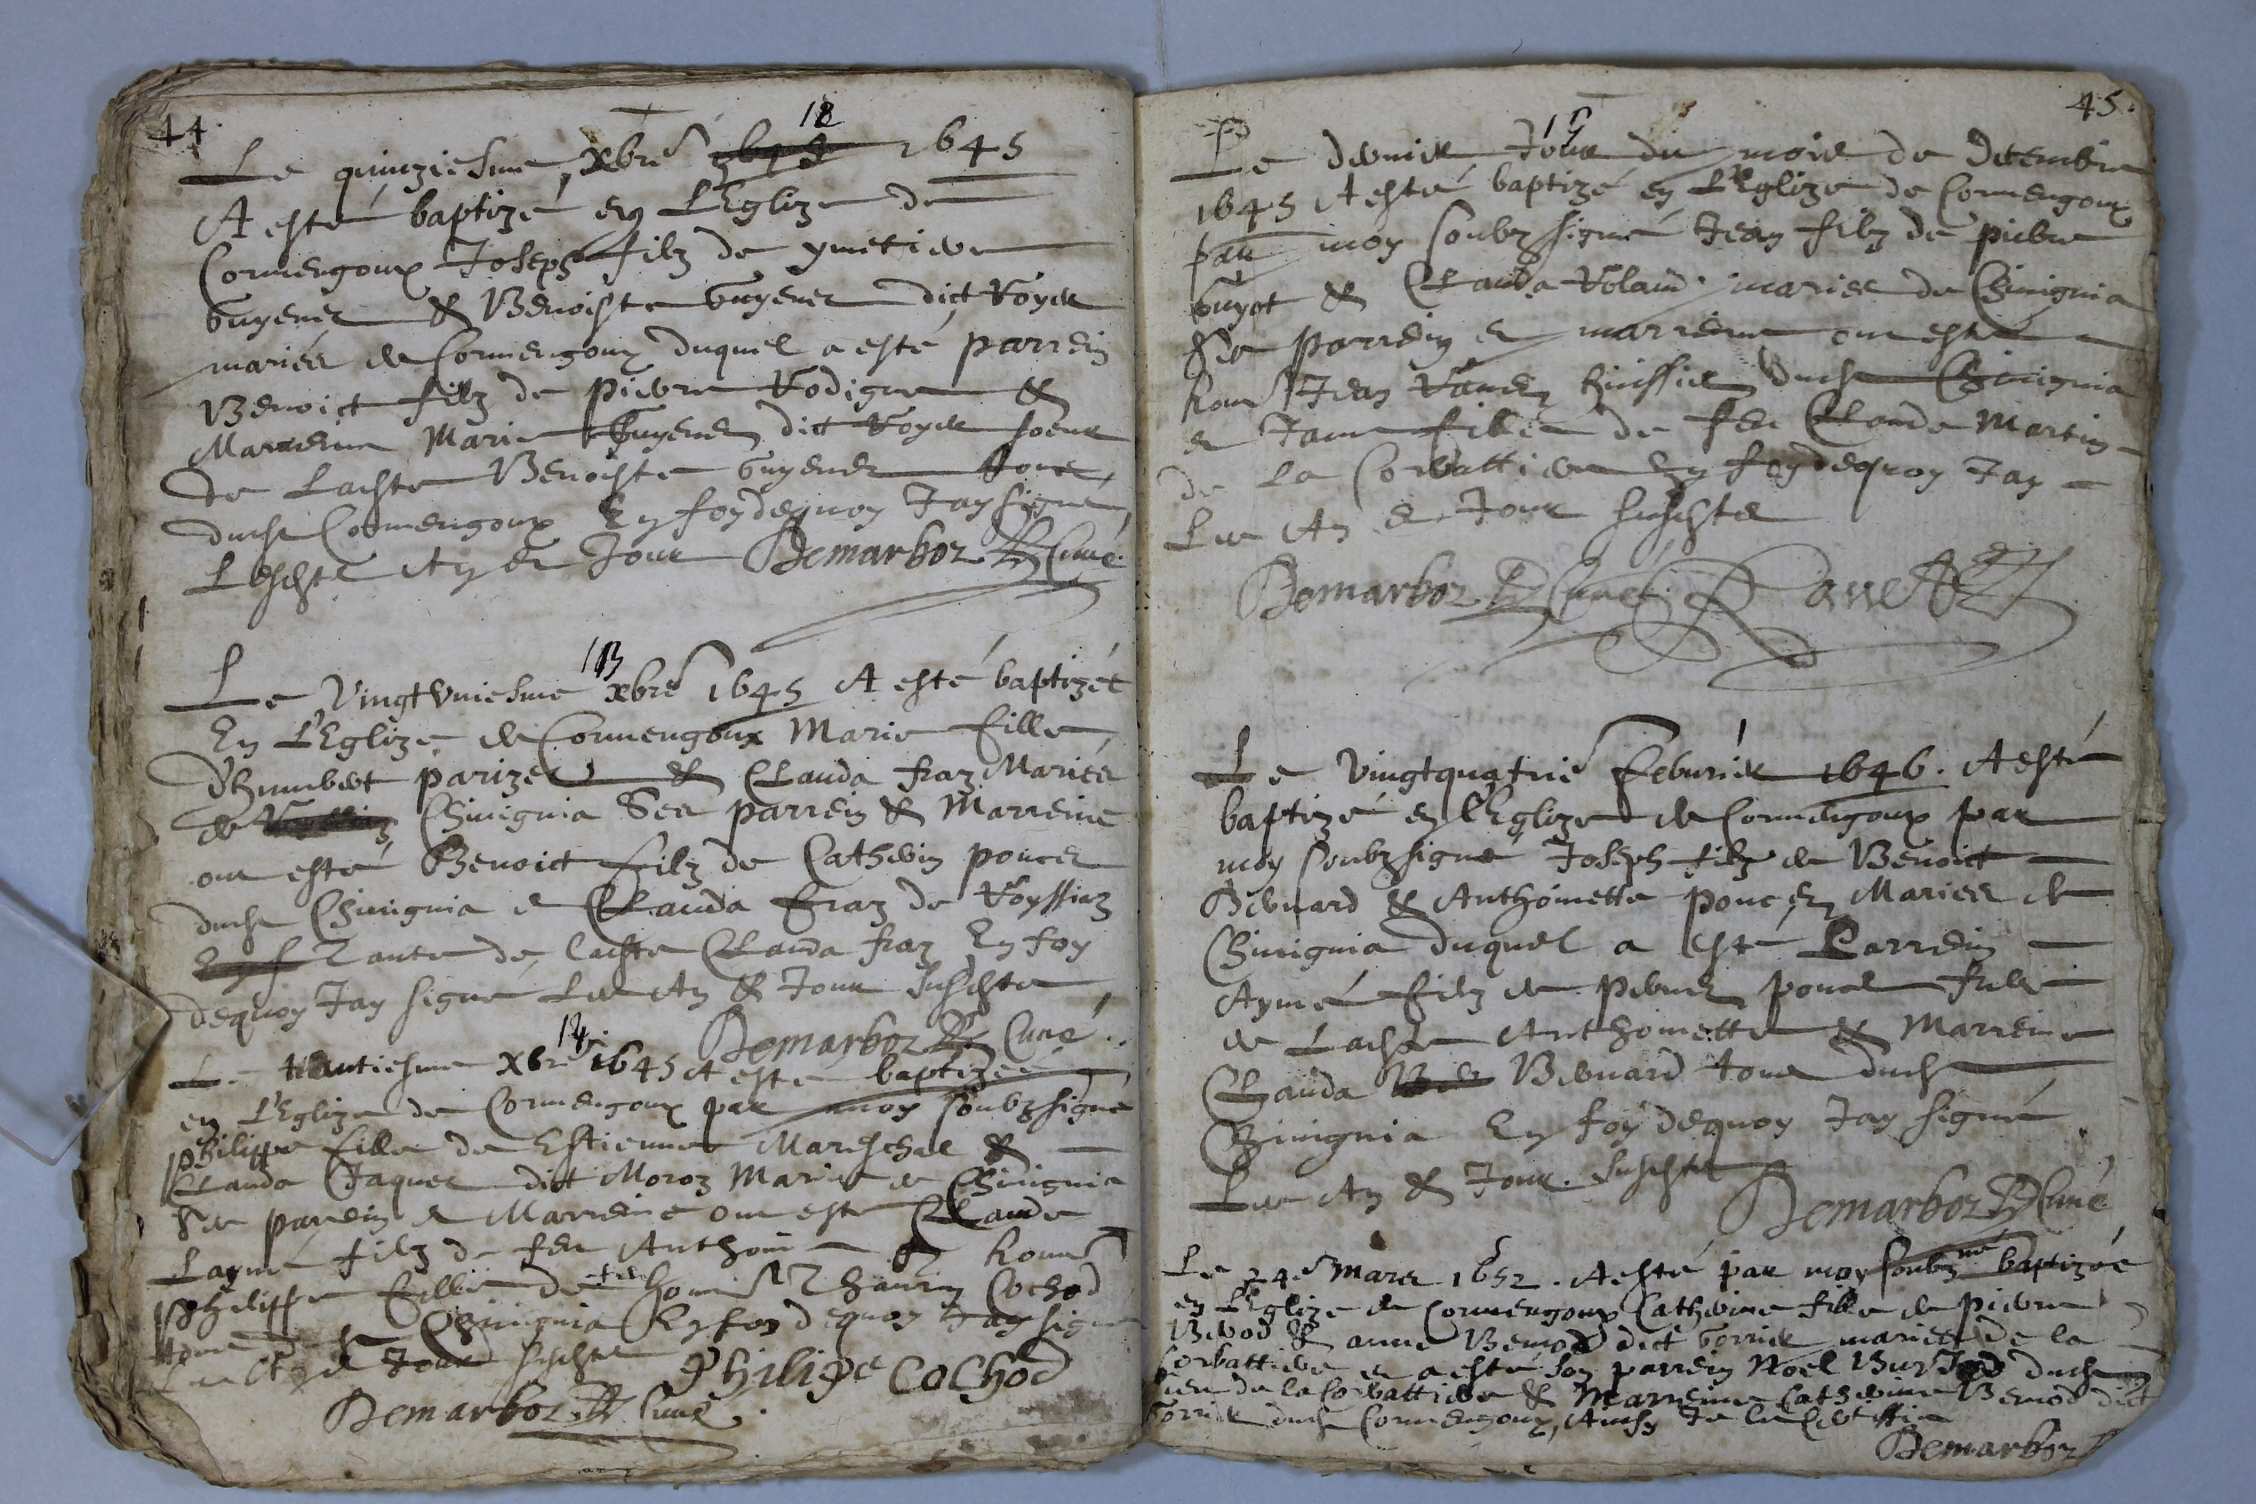 44
12
Le quinziesme xbre 1645
A esté baptizé en L'Eglize de
Cormengoux Joseph filz de ymetiere
Guyenet & Benoiste Guyenet dict Royer
mariés de Cormengoux duquel a esté parrein
Benoict filz de Pierre Rodigue &
Marreine Marie Guyenet dict Royer soeur
de Ladte Benoiste Guyenet tous
dudt Cormengoux En foy dequoy Jay signé
Lesdts An et Jour Demarboz Curé
13
Le Vingtuniesme xbre 1645 A esté baptizée
En L'Eglize de Cormengoux Marie fille
d'Humbert parizet & Clauda fraz Mariés
de Chinignia Ses parrein & Marreine
ont esté Benoict filz de Catherin poncet
dudt Chinignia et Clauda fraz de Royssiaz
Tante de ladte Clauda fraz En foy
dequoy Jay signé Les An & Jour susdts
Demarboz Curé
14
Le trentiesme Xbre 1645 A esté baptizée
en L'Eglize de Cormengoux par moy soubzsigné
philippe fille de Estienne Mareschal &
Clauda Jaquet dict Moroz Mariés de Chinignia
Ses parrein et Marreine ont esté Claude
Laymé filz de feu Anthoine &
Philippe fille de feu hon Thaurin Cochod
tous dudt Chinignia En foy dequoy Jay signé
Les An & Jour susdts Philipe Cochod
Demarboz Curé
45
15
Le dernier Jour du mois de Decembre
1645 A esté baptizé en L'Eglize de Cormengoux
par moy soubzsigné Jean filz de pierre
Guyot & Clauda Rolain mariés de Chinignia
Ses parrein et marreine ont esté
Jean Ravet dudt Chinignia
et Jane fille de feu Claude Martin
de La Corbattiere En foy dequoy Jay
Les An et Jour susdts
Demarboz Curé Ravet
1
Le Vingtquatrie Feburier 1646. A esté
baptizé en l'Eglize de Cormengoux par
moy soubzsigné Joseph filz de Benoict
Bernard & Anthoinette poncet Mariés de
Chinignia duquel a esté Parrein
Aymé filz de pierre poncet frere
de Ladte Anthoinette & Marreine
Clauda Bernard tous dudt
Chinignia En foy dequoy Jay signé
Les An & Jour susdts
Demarboz Curé
Le 24e Mars 1652. A esté par moy soubzné baptizée
en L'Eglize de Cormengoux Catherine fille de pierre
Berod & anne Bernod dict Gorrier mariés de la
Corbattiere et a esté son parrein Noel dudt
lieu de la Corbattiere & Marreine Catherine Bernod dict
Gorrier dudt Cormengoux, Ainsy Je le Certiffie
Demarboz